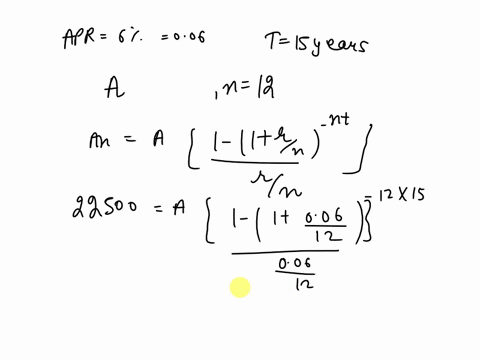 APR = 6% = 0.06 T = 15 years
A , n = 12
An = A [ 1 - (1 + r/n)^-nt / r/n ]
22500 = A [ 1 - ( 1 + 0.06/12 ) }^-12 × 15 / 0.06/12